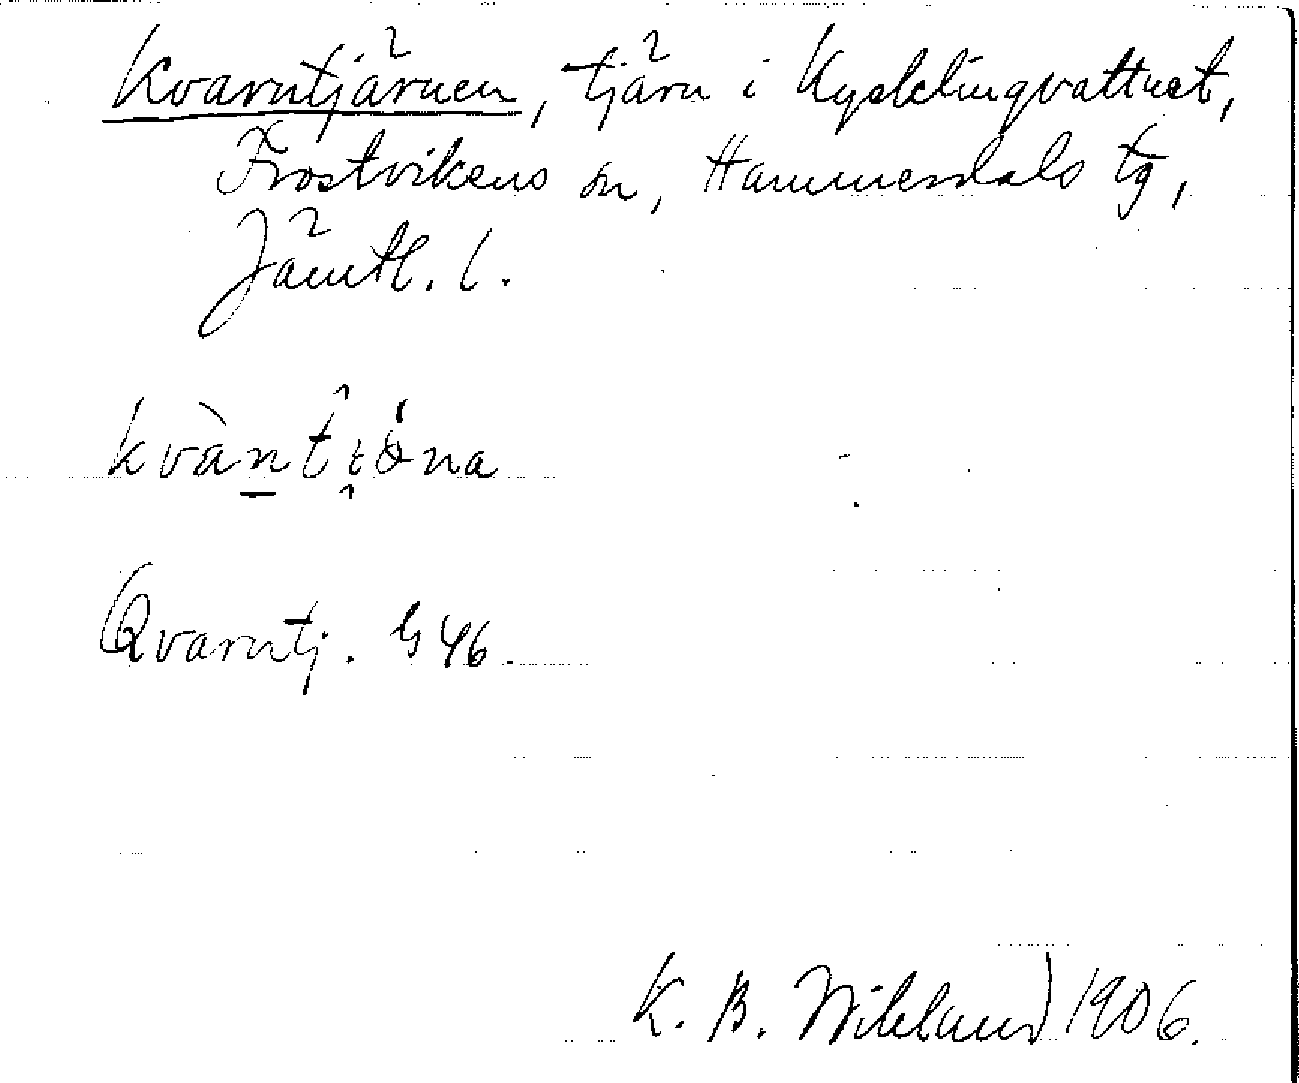 Kvarntjärnen, tjärn i Kycklingvattnet,
Frostvikens sn, Hammerdals tg,
Jämtl. l.
Qvarntj. G 46.
K. B. Wiklund 1906.